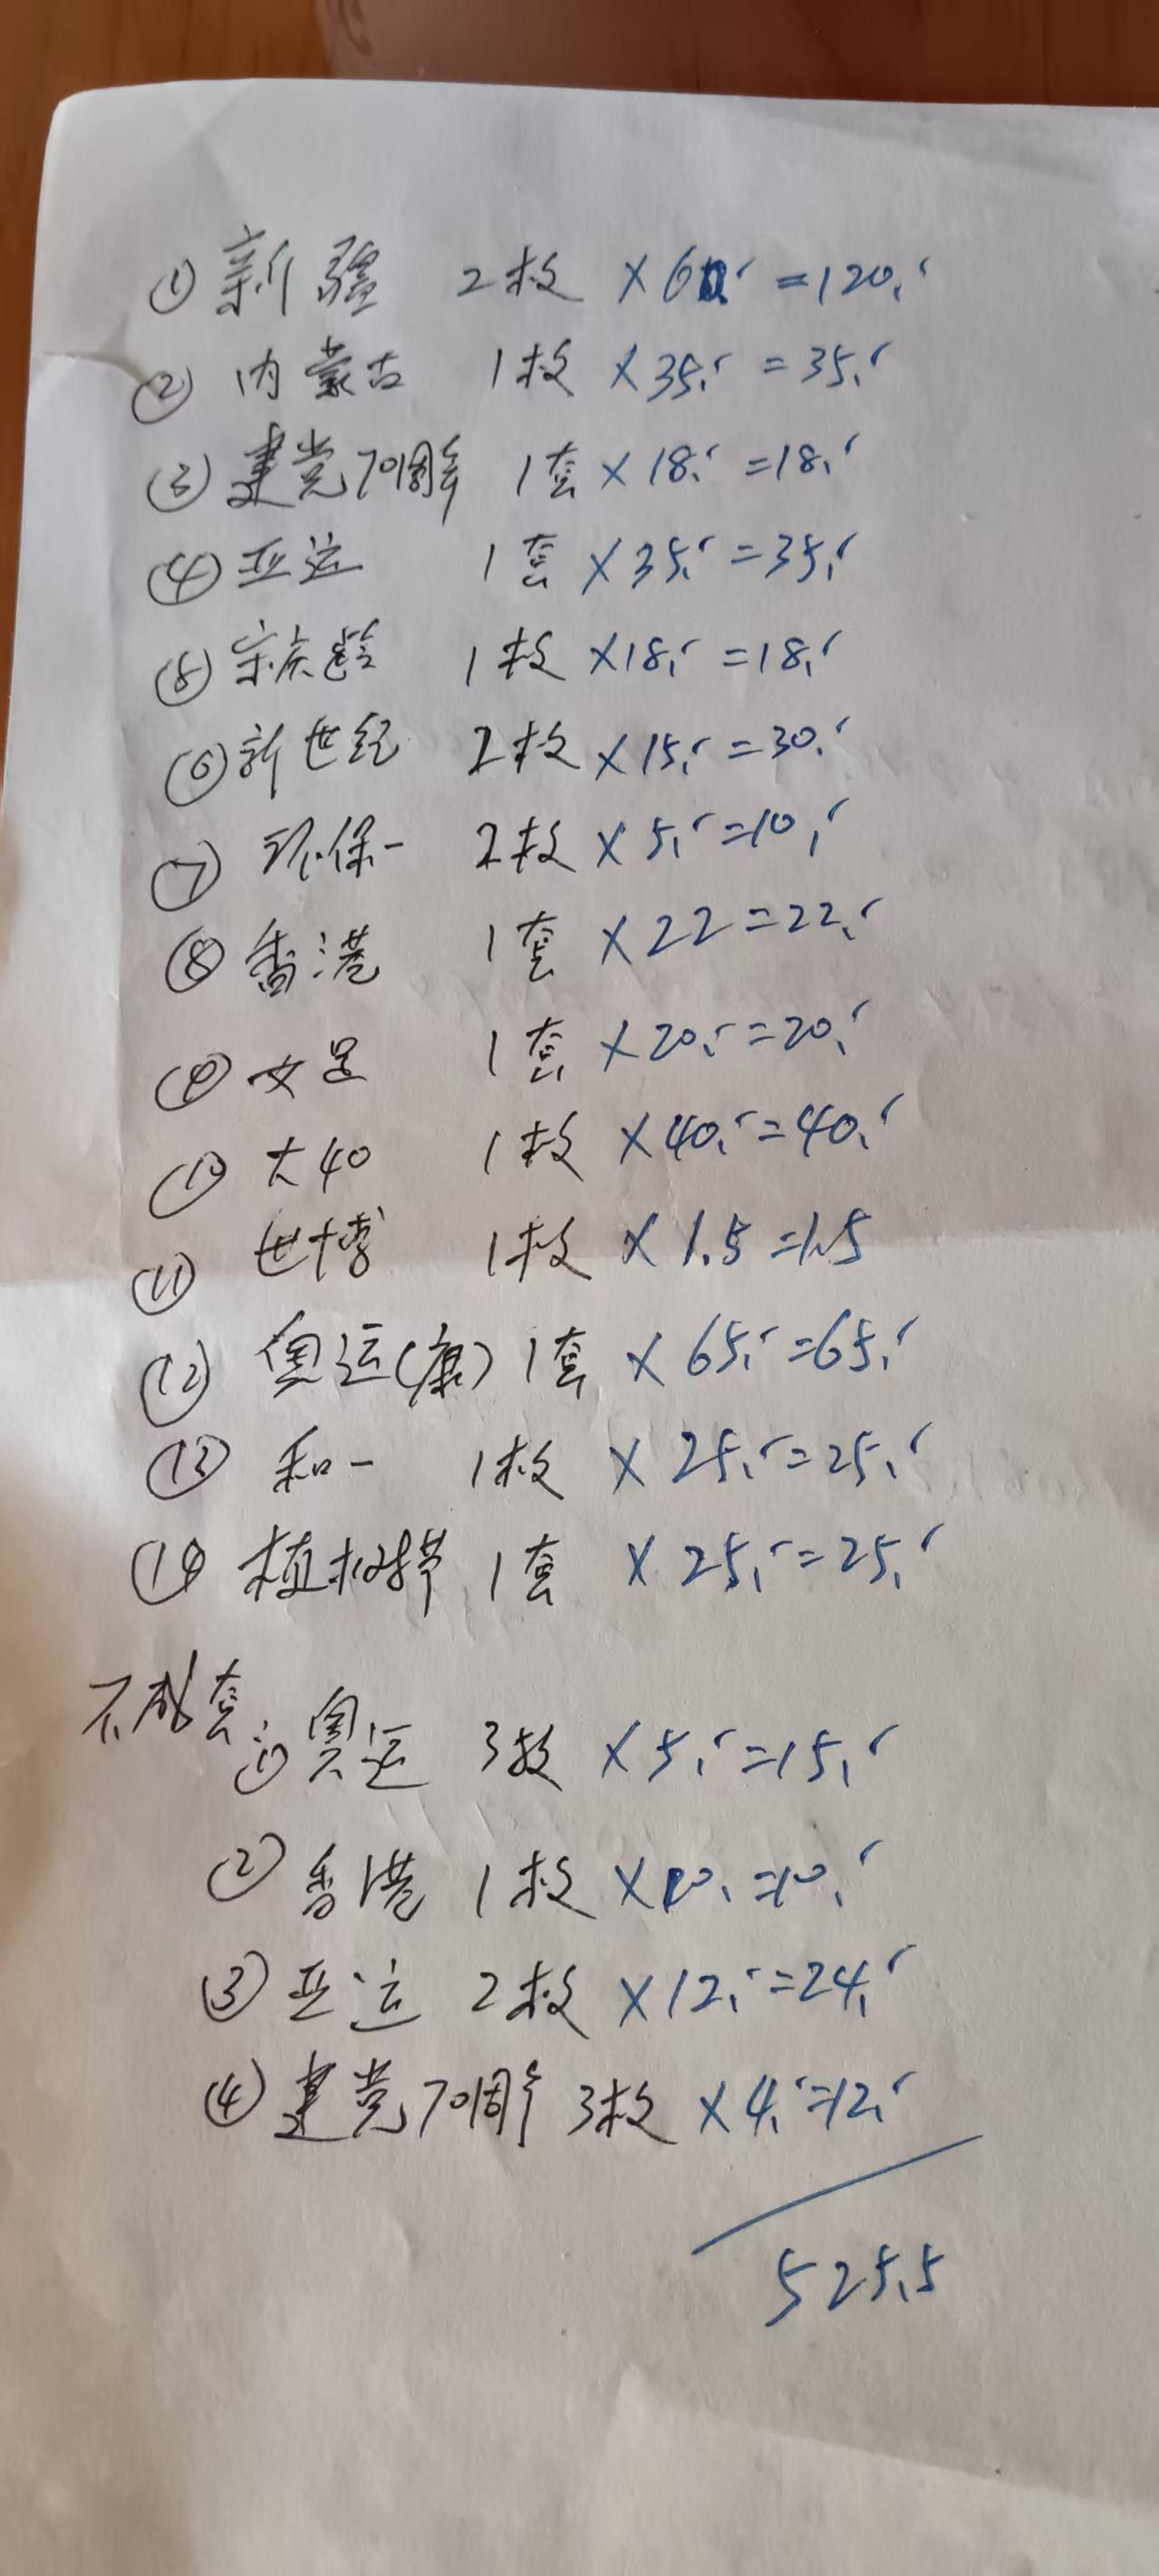 ① 新疆 2枚 ×60.- =120.-
② 内蒙古 1枚 ×35.- =35.-
③ 建党70周年 1套 ×18.- =18.-
④ 亚运 1套 ×35.- =35.-
⑤ 宋庆龄 1枚 ×18.- =18.-
⑥ 新世纪 2枚 ×15.- =30.-
⑦ 环保一 2枚 ×5.- =10.-
⑧ 香港 1套 ×22=22.-
⑨ 女足 1套 ×20.- =20.-
⑩ 大40 1枚 ×40.- =40.-
⑪ 世博 1枚 ×1.5=1.5
⑫ 奥运(康) 1套 ×65.- =65.-
⑬ 和一 1枚 ×25.- =25.-
⑭ 植树节 1套 ×25.- =25.-
不成套: ① 奥运 3枚 ×5.- =15.-
② 香港 1枚 ×10. =10.-
③ 亚运 2枚 ×12.- =24.-
④ 建党70周年 3枚 ×4.- =12.-
525.5